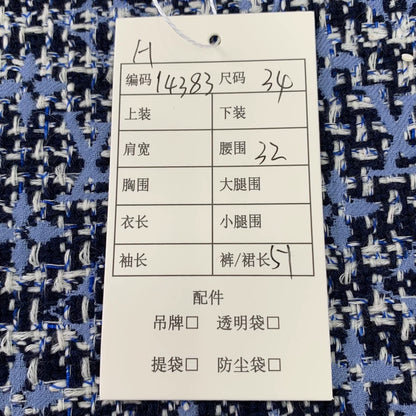 H
编码 14383 尺码 34
上装 下装
肩宽 腰围 32
胸围 大腿围
衣长 小腿围
袖长 裤/裙长 51
配件
吊牌□ 透明袋□
提袋□ 防尘袋□